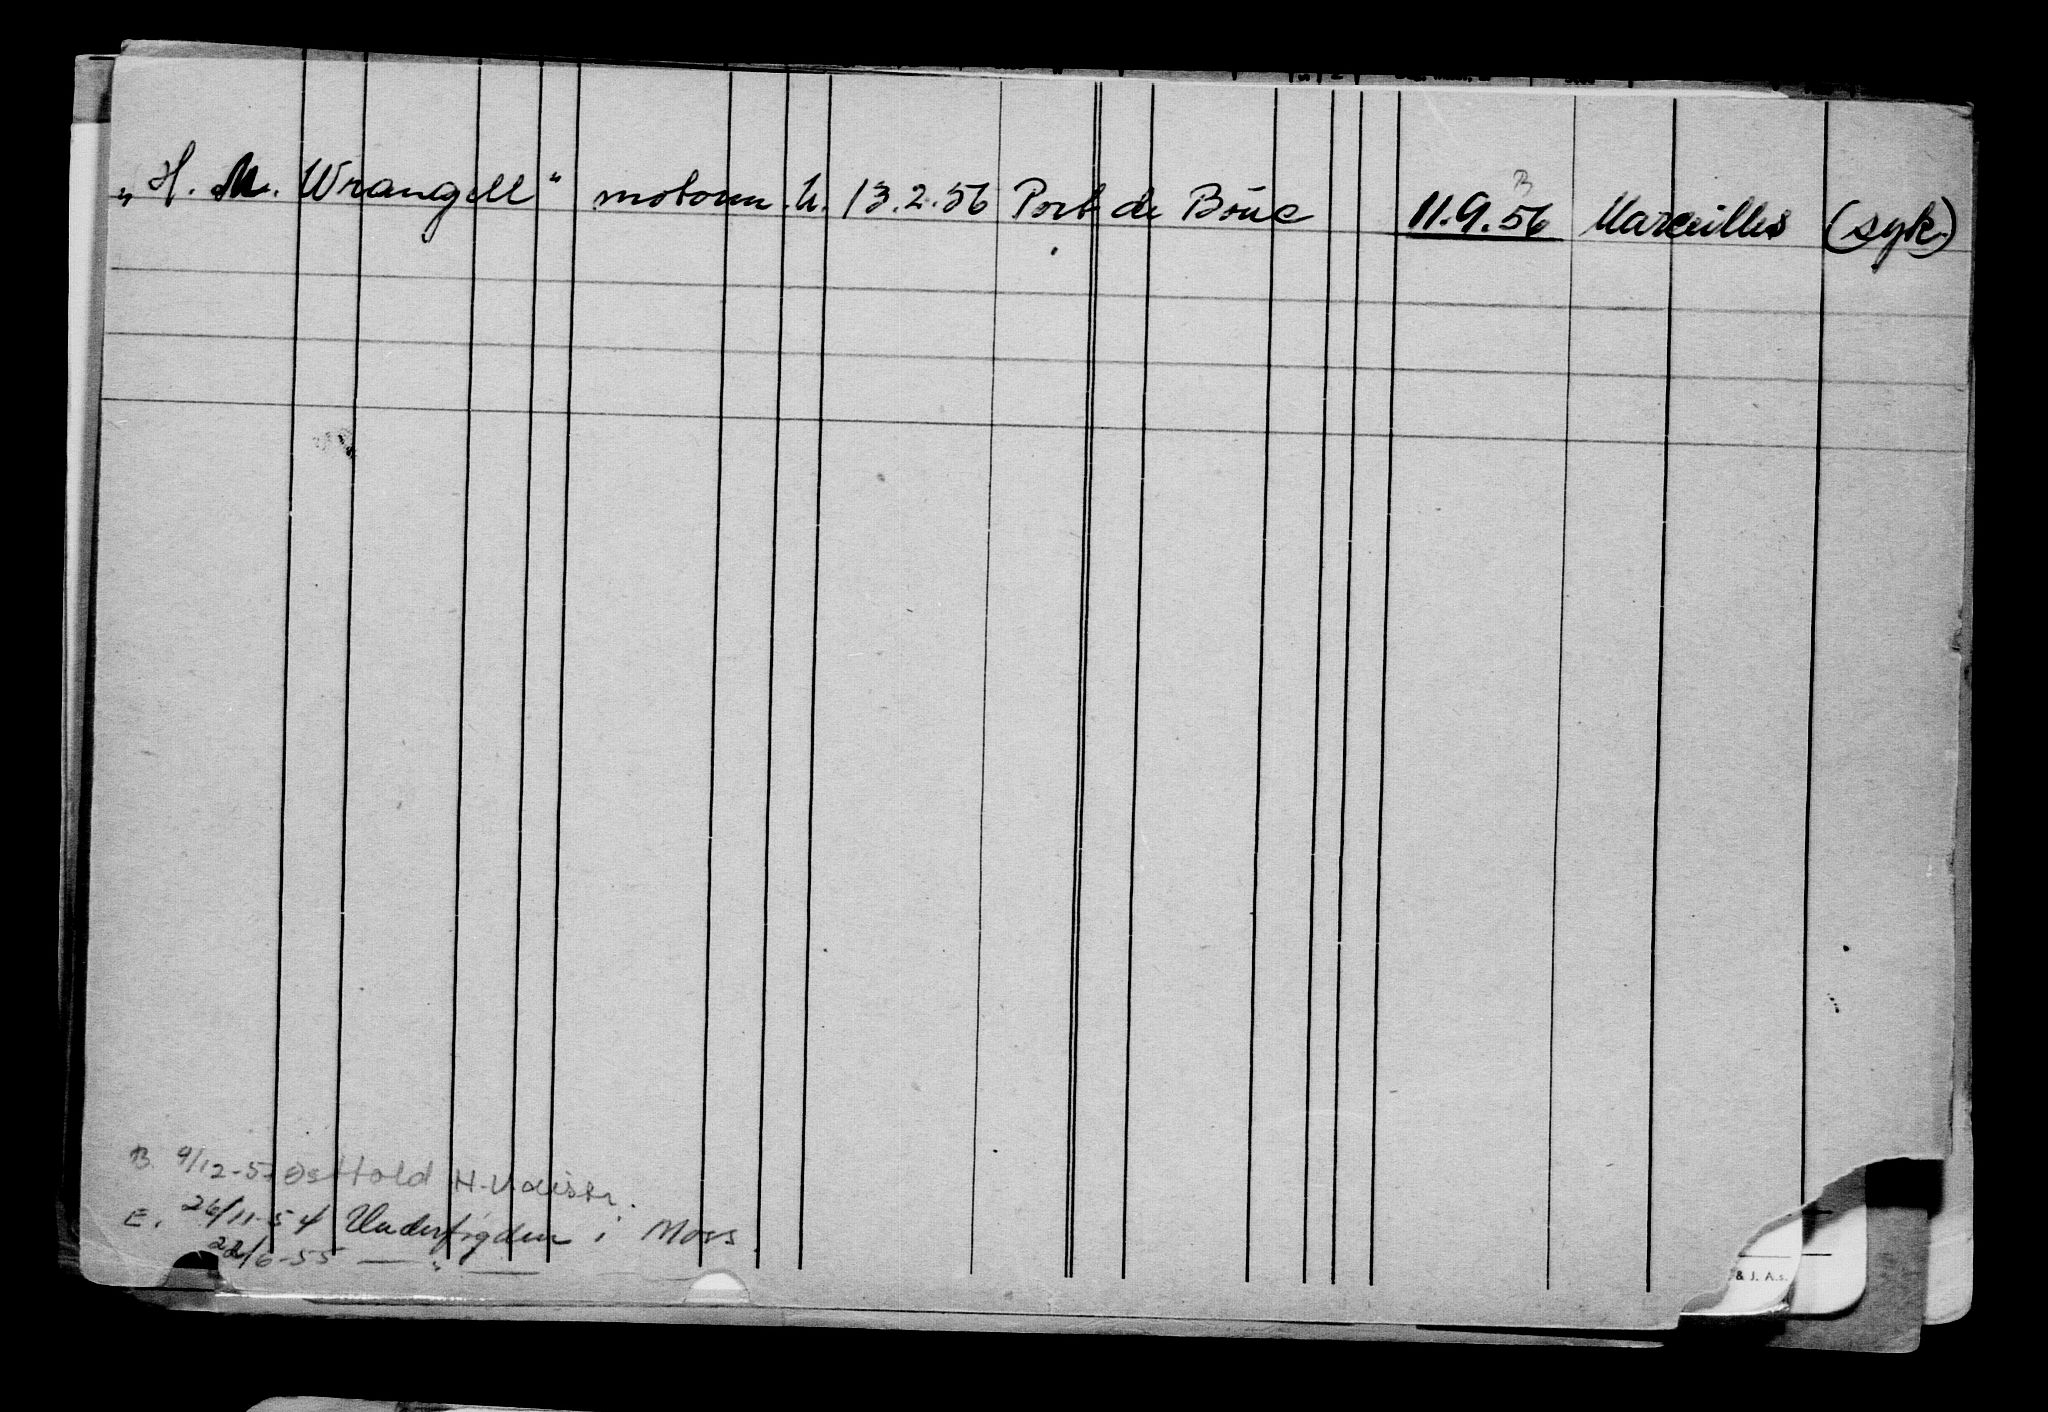 „H. M. Wrangell“ motorm. U. 13.2.56 Port de Bouc 11.9.56 Marseilles (syk)
B
B. 9/12-5 Osthold H.
E. 26/11-54 Undersøgden i Moss.
22/6-55 — „ —
& J. A.s.